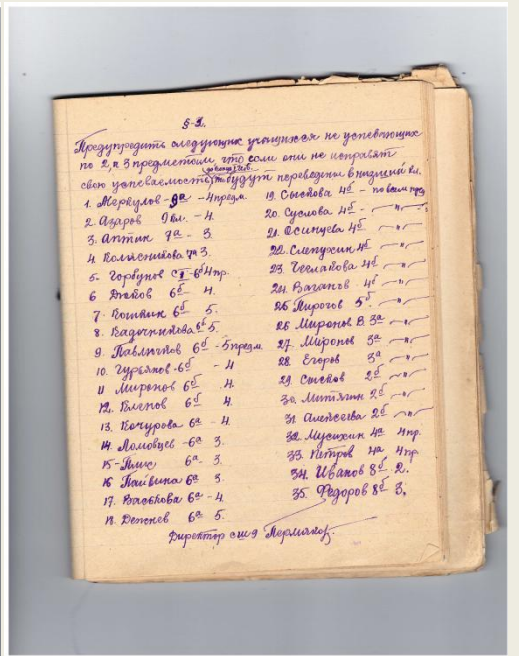 §-3.
Предупредить следующих учащихся не успевающих
по 2, и 3 предметам что если они не исправят
свою успеваемость, то будут переведены в низший кл.
1. Меркулов - 9а - 4 предм.
2. Азаров 9 кл. - 4.
3. Аптин 7а - 3.
4. Колясникова 7а 3.
5. Горбунов 6б 4 пр.
6 Дьков 6б 4.
7. Кошкин 6б 5.
8. Кадочникова 6б 5.
9. Павлючков 6б - 5 предм.
10. Гурьянов - 6б - 4
11 Миронов 6б 4.
12. Кленов 6б 4.
13. Кочурова 6а - 4.
14. Ломовцев - 6а 3.
15 - Плис 6а - 3.
16 Пайвина 6а 3.
17. Васькова 6а - 4.
18. Дежнев 6а 5.
19. Сыскова 4б - по всем пред
20. Суслова 4б - 〃
21. Осинцева 4б - 〃
22. Слепухин 4б - 〃
23. 4б - 〃
24. Ваганов 4б - 〃
25 Пирогов 5б - 〃
26 Миронов В. 3а - 〃
27. Миронов 3а - 〃
28. Егоров 3а - 〃
29. 2б - 〃
30. Митягин 2б - 〃
31. Алексеева 2б - 〃
32. Мусихин 4а 4 пр.
33. Петров 4а 4 пр
34. Иванов 8б 2.
35. Федоров 8б 3.
Директор сш 9 Пермяков